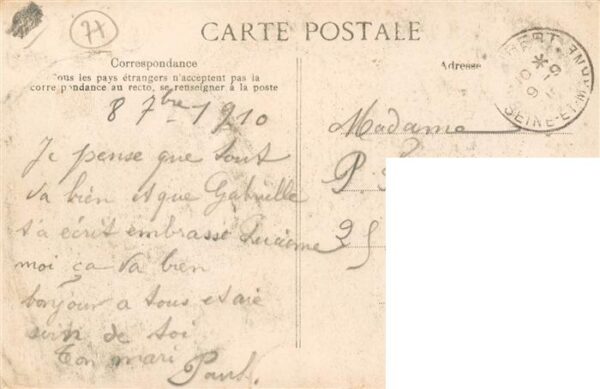 77
CARTE POSTALE
Correspondance
Tous les pays étrangers n'acceptent pas la
corre pondance au recto, se renseigner à la poste
Adresse
SEINE-ET-MARNE
8 7bre 1910
Je pense que tout
va bien et que Gabrielle
t'a écrit embrasse Lucienne
moi ça va bien
bonjour a tous et aie
soin de toi
Ton mari
Paul.
Madame
P